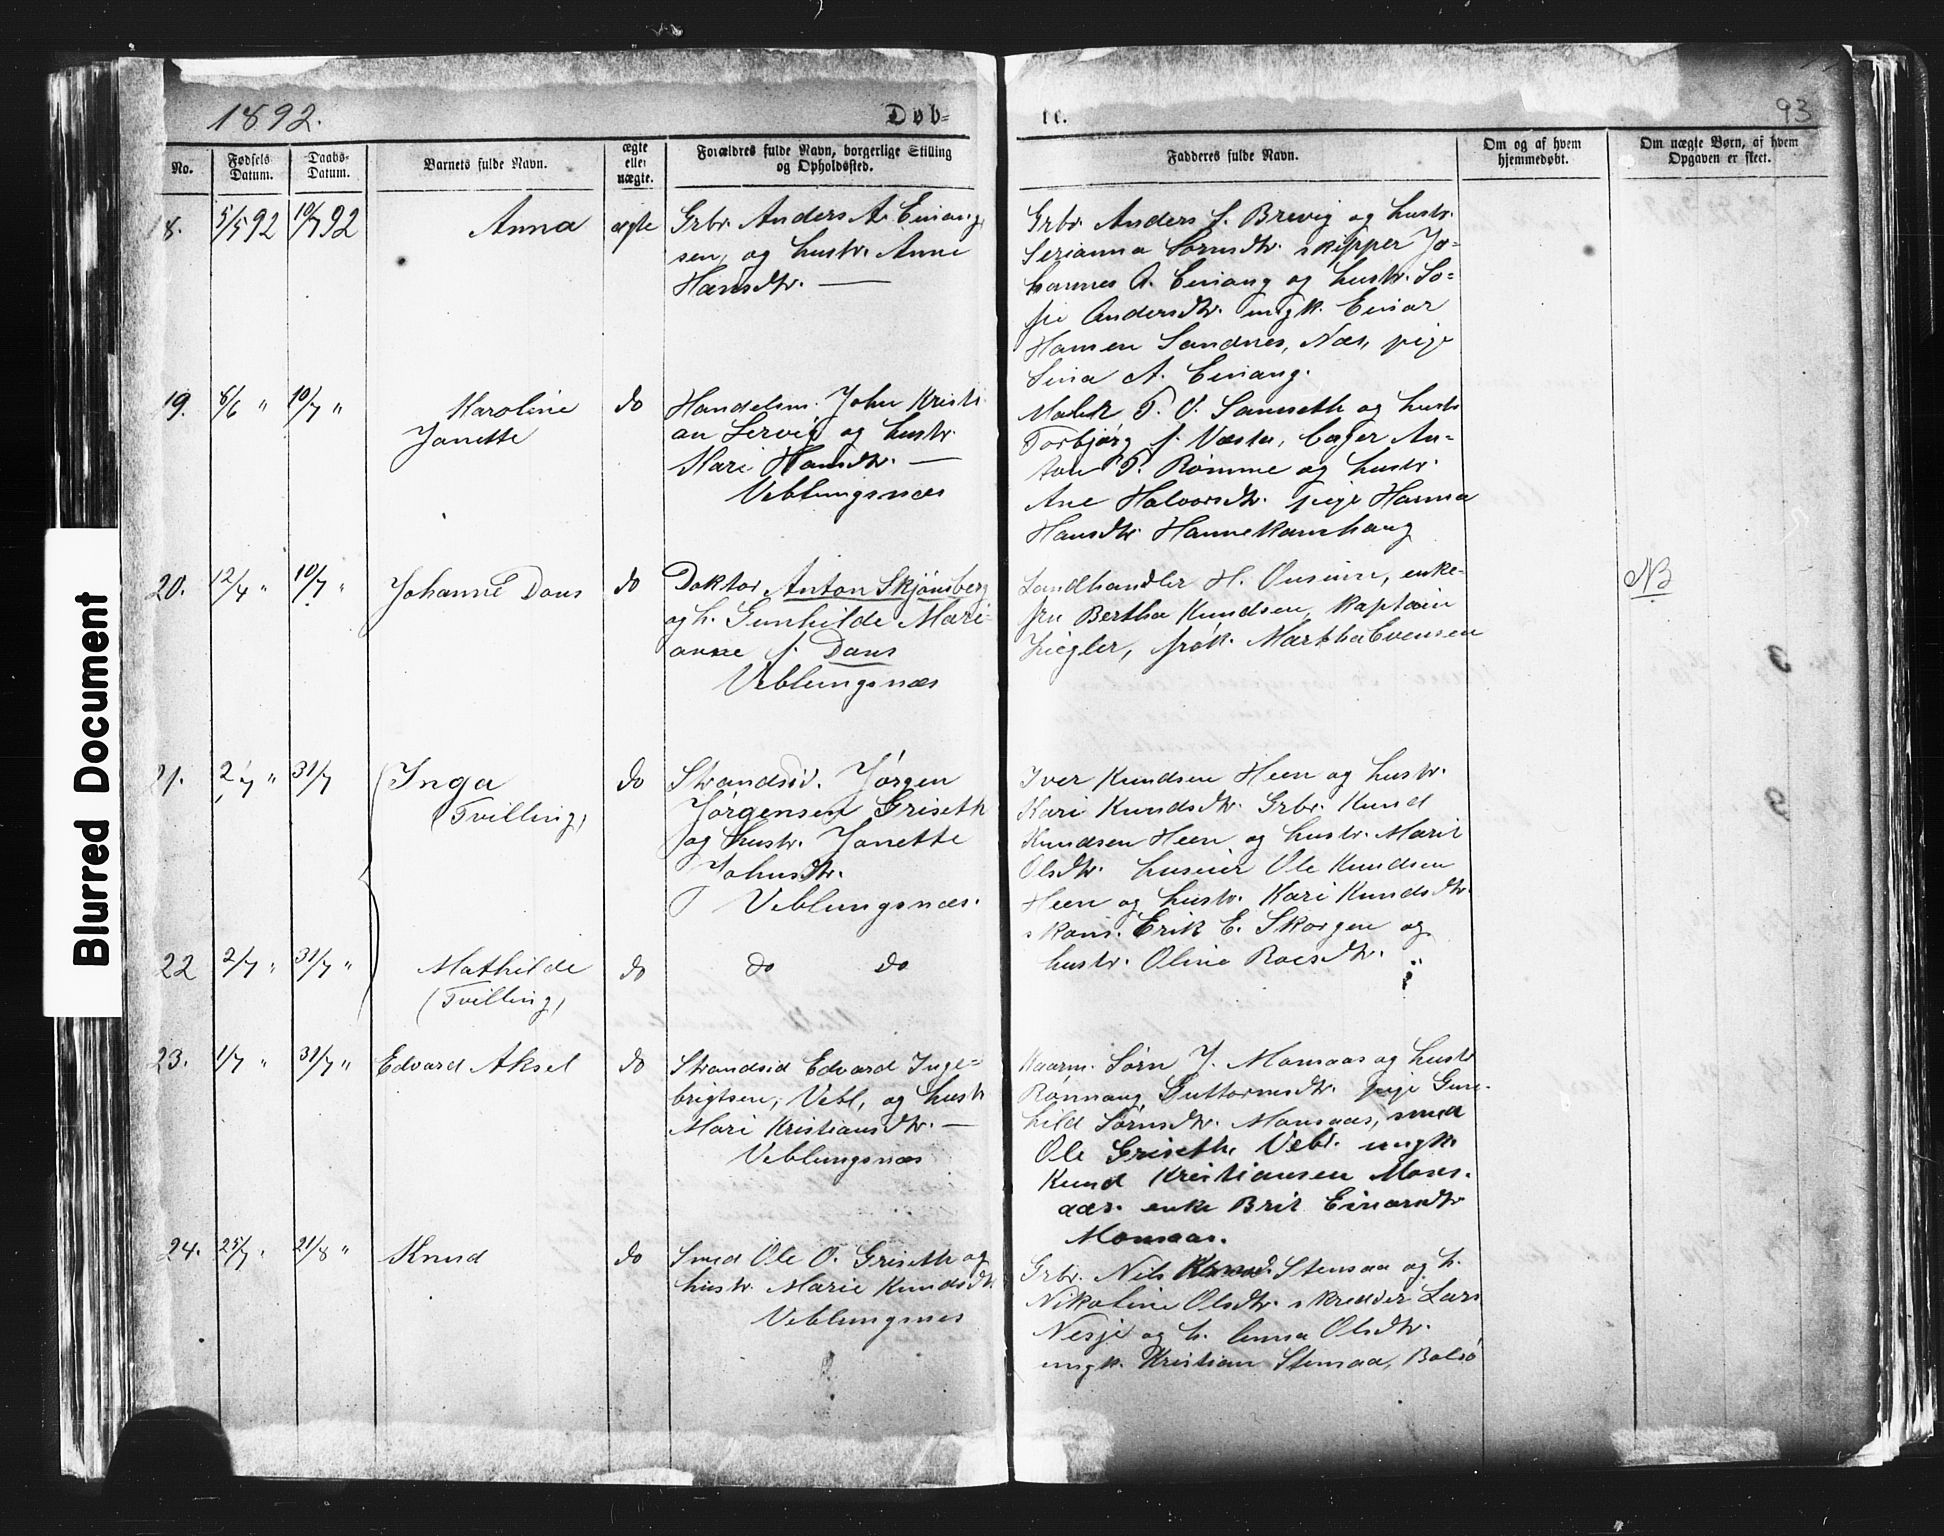 1892.
Døb=
te.
93
No.
Fødsels Datum.
Daabs-Datum.
Barnets fulde Navn.
ægte eller uægte.
Forældres fulde Navn, borgerlige Stilling og Opholdssted.
Fadderes fulde Navn.
Om og af hvem hjemmedøbt.
Om uægte Børn, af hvem Opgaven er skeet.
18. 5/5 92 10/7 92 Anna ægte
Grbr. Anders A. Einang=
sen, og hustr. Anne
Hansdtr. —
Grbr. Anders J. Brevig og hustr.
Serianna Sørnsdtr. skipper Jo=
hannes A. Einang og hustr. So=
fie Andersdtr. ungk. Einar
Hansen Sandnes, Næs, pige
Sina A. Einang.
19. 8/6 " 10/7 " Karoline
Janette
do
Handelsm. John Kristi
an Lervig og hustr.
Kari Hansdtr. —
Veblungsnæs
T. O. Samseth og hustr
Torbjørg f. Væstn, An=
ton T. Romme og hustr.
Ane Halvorsdtr. pige Hanna
Hansdtr Hannekamhaug
20. 12/4 " 10/7 " Johanne Dons do
Doktor Anton Skjønsberg
og h. Gunhilde Mari=
anne f. Dons
Veblungsnæs
Landhandler H. Onsum, enke-
fru Bertha Knudsen, kaptain
Ziegler, frøk. Martha Evensen
NB
21. 2/7 " 31/7 Inga
(Tvilling)
do
Strandsid. Jørgen
Jørgensen Griseth
og hustr. Janette
Johnsdtr.
Veblungsnæs.
Iver Knudsen Heen og hustr.
Kari Knudsdtr. Grbr. Knud
Knudsen Heen og hustr. Marit
Olsdtr. husmr Ole Knudsen
Heen og hustr. Kari Knudsdtr.
Erik E. Skorgen og
hustr. Oline Roesdtr.
22 2/7 " 31/7 " Mathilde
(Tvilling)
do do do
23. 1/7 " 31/7 " Edvard Aksel do
Strandsid Edvard Inge=
brigtsen, Vebl, og hustr
Mari Kristiansdtr. —
Veblungsnæs
Kaarm. Sørn J. Monsaas og hustr
Rønnaug Guttormsdtr. pige Gun-
hild Sørnsdtr. Monsaas, smed
Ole Griseth, Vebl. ungk.
Knud Kristiansen Mons-
aas. enke Brit Einarsdtr
Monsaas.
24. 25/7 " 21/8 " Knud do
Smed Ole O. Griseth og
hustr. Marie Knudsdtr.
Veblungsnes
Grbr. Nils Stensaa og h.
Nikoline Olsdtr. skredder Lars
Nesje og h. Anna Olsdtr.
ungk. Kristian Stensaa, Bolsø
Blurred Document